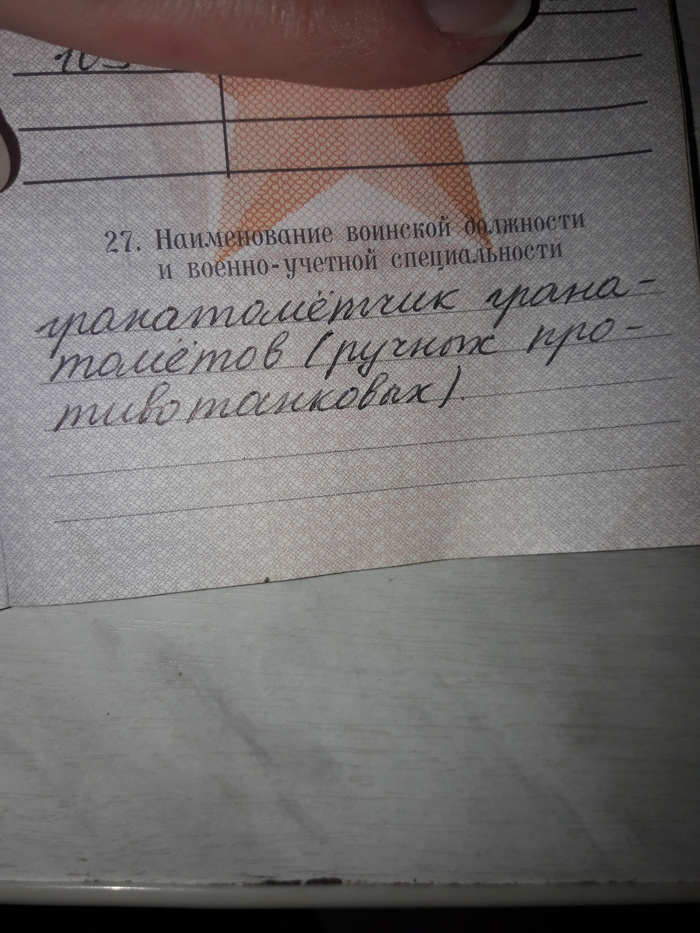 27. Наименование воинской должности
и военно-учетной специальности
гранатомётчик грана-
томётов (ручных про-
тивотанковых).